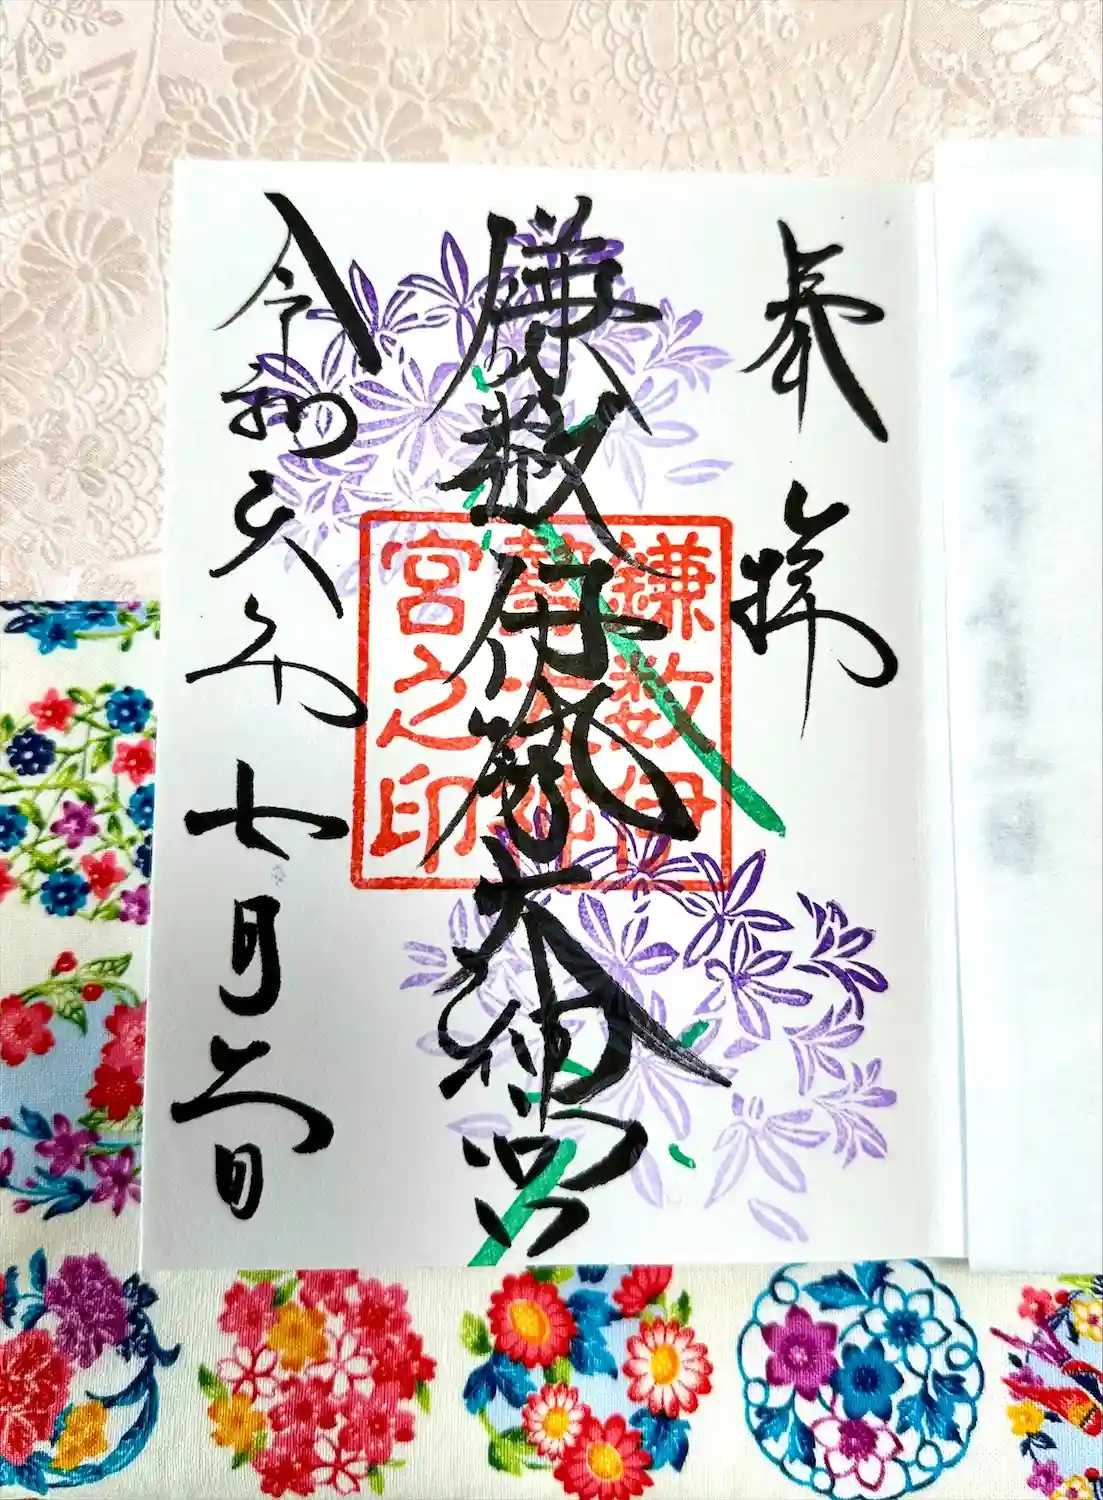 奉拝
鎌数伊勢大神宮
鎌数伊
勢大神
宮之印
令和六年七月日